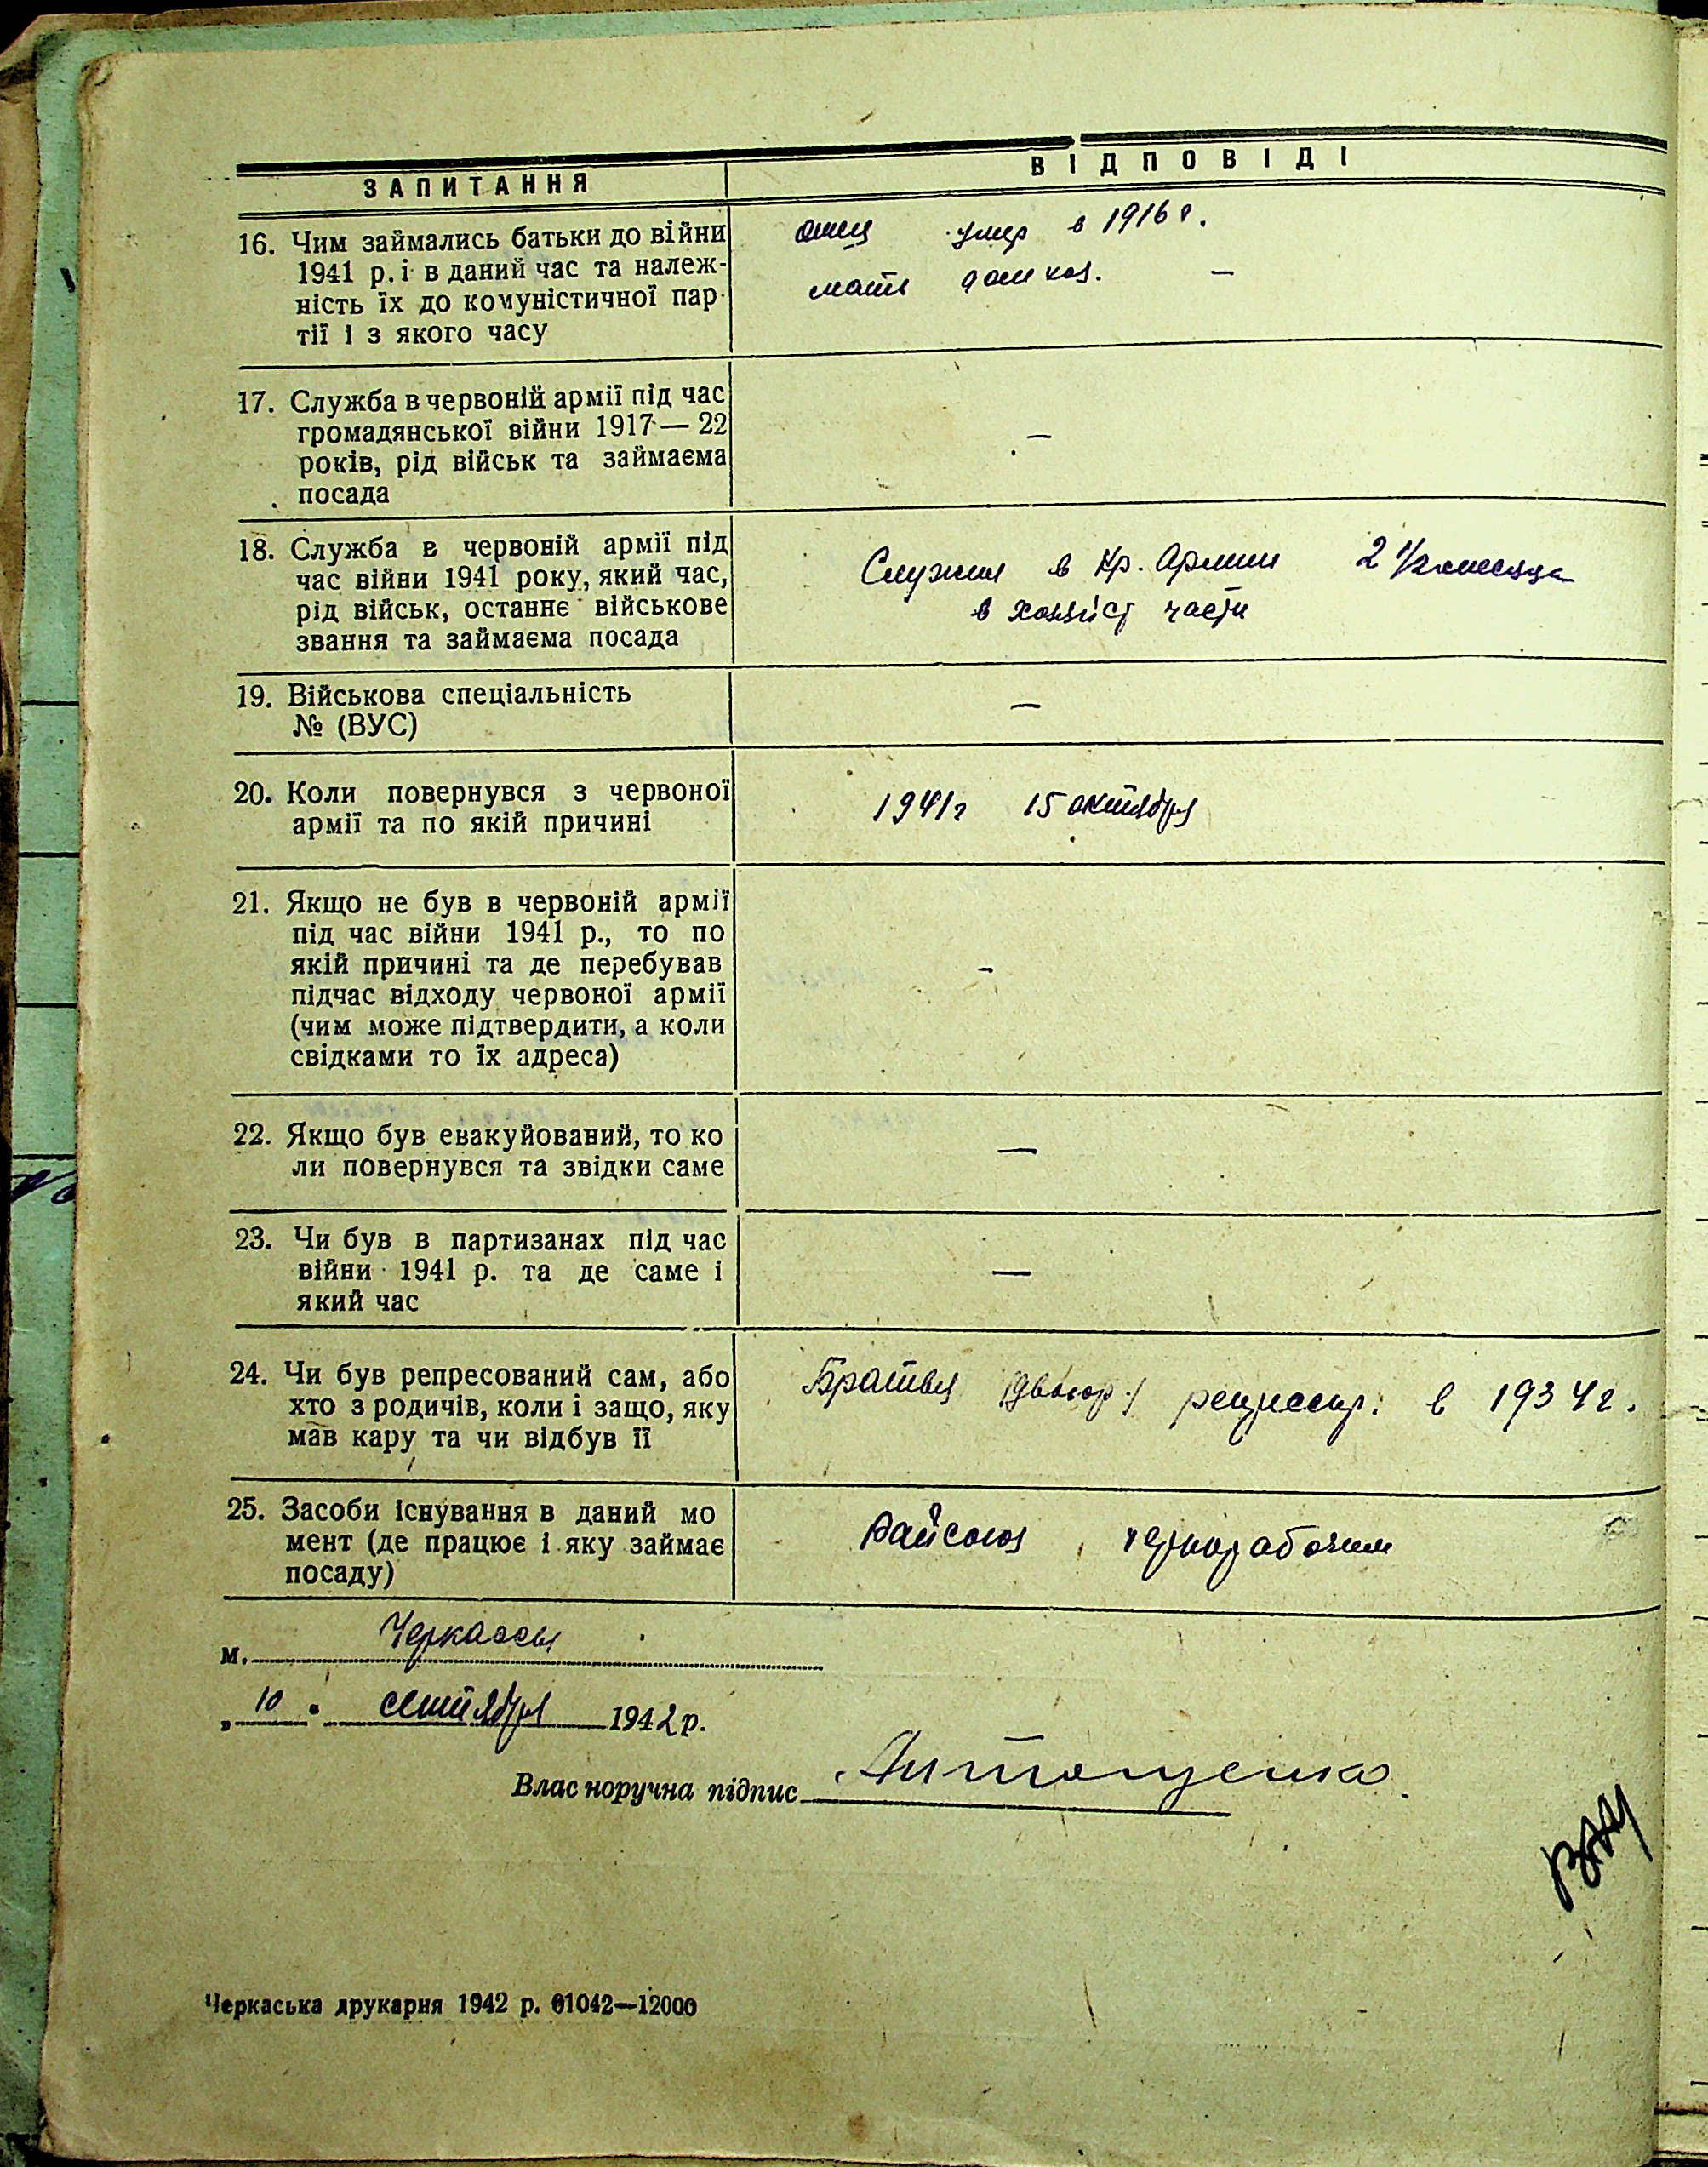 ЗАПИТАННЯ
ВІДПОВІДІ
16. Чим займались батьки до війни
1941 р. і в даний час та належ-
ність їх до комуністичної пар
тії і з якого часу
отец умер в 1916 г.
мать домхоз. —
17. Служба в червоній армії під час
громадянської війни 1917 — 22
років, рід військ та займаєма
посада
—
18. Служба в червоній армії під
час війни 1941 року, який час,
рід військ, останнє військове
звання та займаєма посада
Служил в Кр. Армии 2 1/2 месяца
в хозяйст части
19. Військова спеціальність
№ (ВУС)
—
20. Коли повернувся з червоної
армії та по якій причині
1941г 15 октября
21. Якщо не був в червоній армії
під час війни 1941 р., то по
якій причині та де перебував
підчас відходу червоної армії
(чим може підтвердити, а коли
свідками то їх адреса)
-
22. Якщо був евакуйований, то ко
ли повернувся та звідки саме
—
23. Чи був в партизанах під час
війни 1941 р. та де саме і
який час
—
24. Чи був репресований сам, або
хто з родичів, коли і защо, яку
мав кару та чи відбув її
Братья /двоюр./ репрессир. в 1934г.
25. Засоби існування в даний мо
мент (де працює і яку займає
посаду)
Райсоюз, чернорабочим
м. Черкассы
„ 10 " сентября 1942 р.
Власноручна підпис Антощенко
Черкаська друкарня 1942 р. 01042—12000